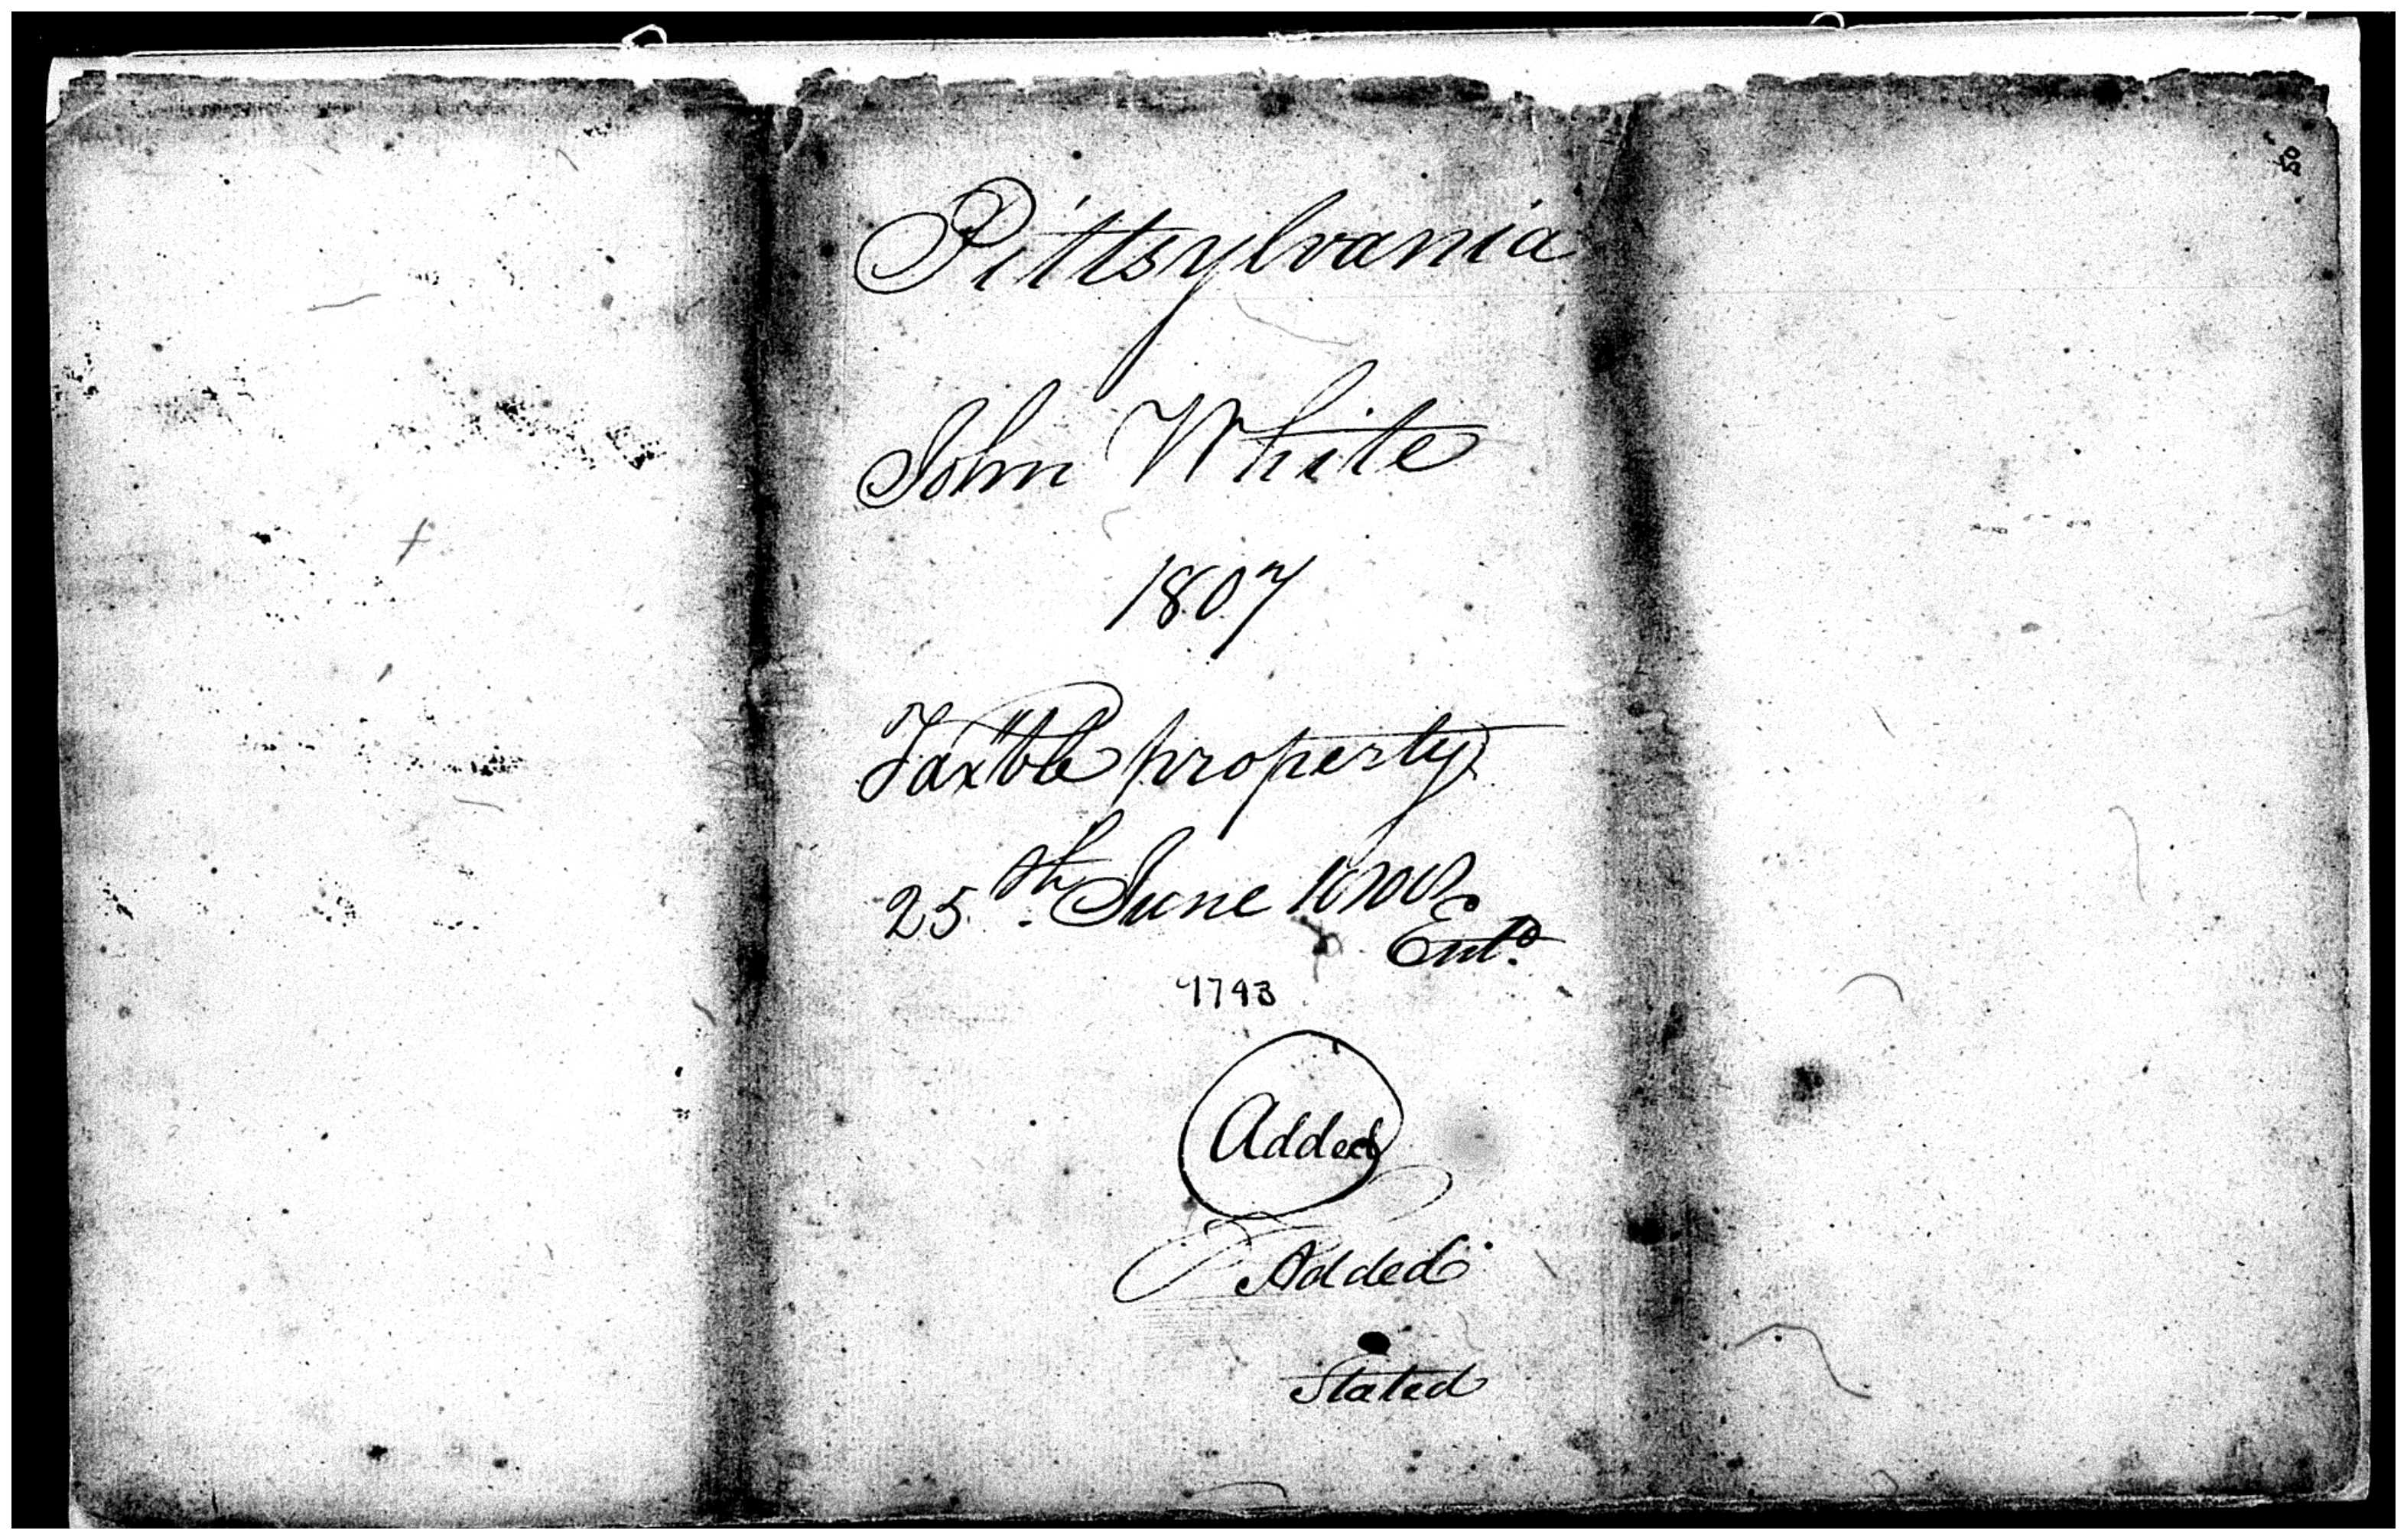 Pittsylvania
John White
1807
Taxble property
25th June
Entd
Added
Added
Stated